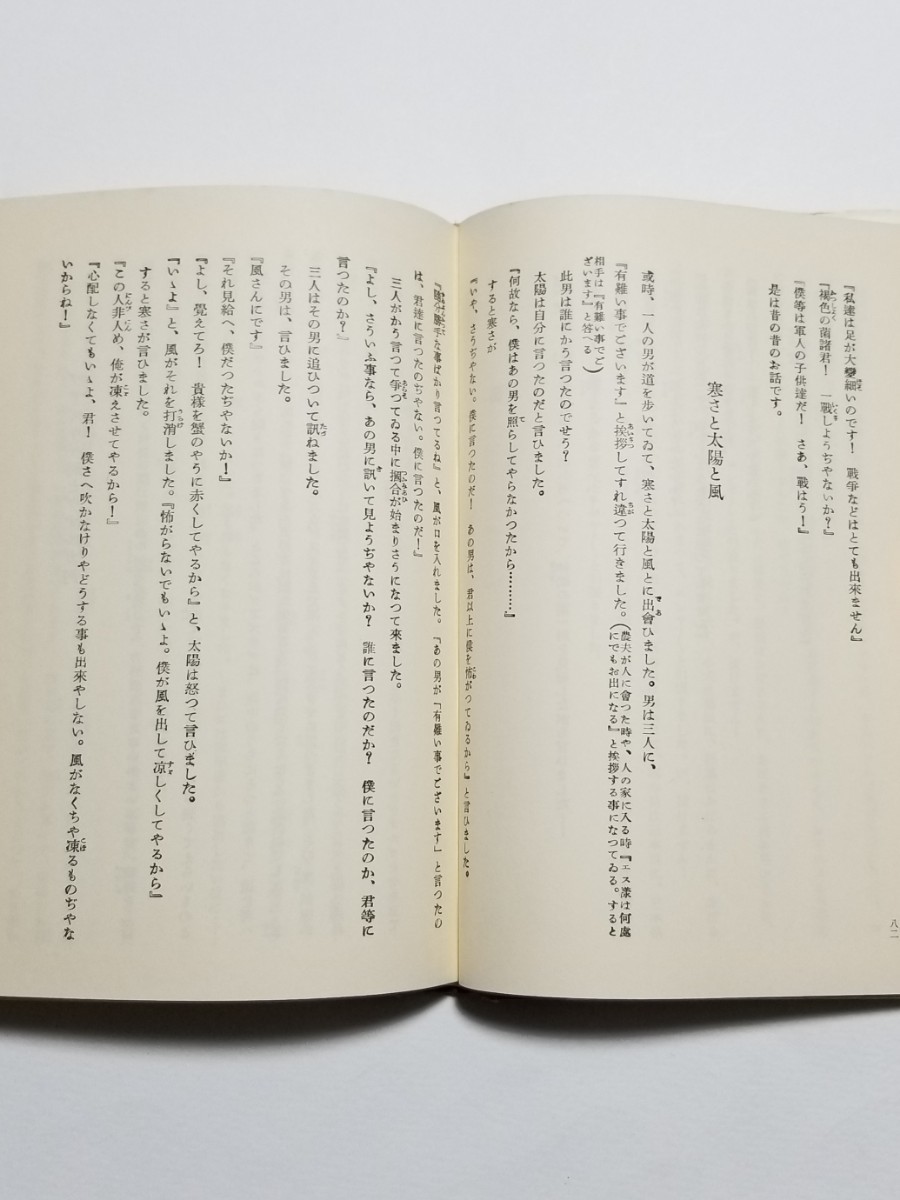 『私達は足が大變細いのです! 戰爭などはとても出來ません』
『褐色の菌諸君! 一戰しようぢやないか?』
『僕等は軍人の子供達だ! さあ、戰はう!』
是は昔の昔のお話です。
寒さと太陽と風
或時、一人の男が道を歩いてゐて、寒さと太陽と風とに出會ひました。男は三人に、
『有難い事でございます』と挨拶してすれ違つて行きました。(農夫が人に會つた時や、人の家に入る時『エス樣は何處にでもお出になる』と挨拶する事になつてゐる。すると
相手は『有難い事でございます』と答へる)
此男は誰にかう言つたのでせう?
太陽は自分に言つたのだと言ひました。
『何故なら、僕はあの男を照らしてやらなかつたから………』
すると寒さが
『いや、さうぢやない。僕に言つたのだ! あの男は、君以上に僕を怖がつてゐるから』と言ひました。
な事ばかり言つてるね』と、風が口を入れました。『あの男が「有難い事でございます」と言つたの
は、君達に言つたのぢやない。僕に言つたのだ!』
三人がかう言つて爭つてゐる中に摑合が始まりさうになつて來ました。
『よし、さういふ事なら、あの男に訊いて見ようぢやないか? 誰に言つたのだか? 僕に言つたのか、君等に
言つたのか?』
三人はその男に追ひついて訊ねました。
その男は、言ひました。
『風さんにです』
『それ見給へ、僕だつたぢやないか!』
『よし、覺えてろ! 貴樣を蟹のやうに赤くしてやるから』と、太陽は怒つて言ひました。
『いゝよ』と、風がそれを打消しました。『怖がらないでもいゝよ。僕が風を出して凉しくしてやるから』
すると寒さが言ひました。
『この人非人め、俺が凍えさせてやるから!』
『心配しなくてもいゝよ、君! 僕さへ吹かなけりやどうする事も出來やしない。風がなくちや凍るものぢやな
いからね!』
八二